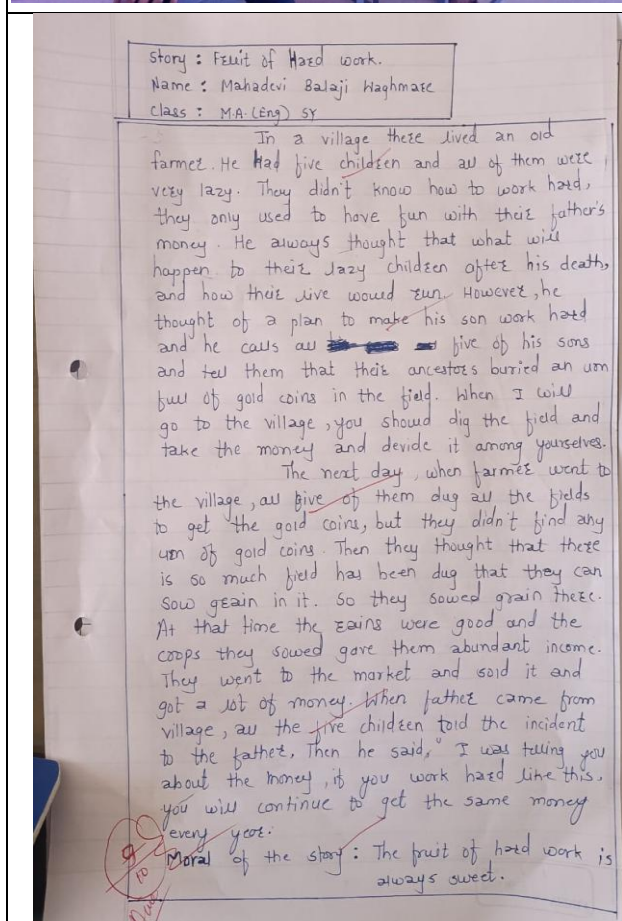 Story : Fruit of Hard work.
Name : Mahadevi Balaji Waghmare
Class : M.A. (Eng) SY
In a village there lived an old
farmer. He Had five children and all of them were
very lazy. They didn't know how to work hard,
they only used to have fun with their father's
money. He always thought that what will
happen to their lazy children after his death,
and how their live would run. However, he
thought of a plan to make his son work hard
and he calls all five of his sons
and tell them that their ancestors buried an urn
full of gold coins in the field. When I will
go to the village, you should dig the field and
take the money and devide it among yourselves.
The next day, when farmer went to
the village, all five of them dug all the fields
to get the gold coins, but they didn't find any
urn of gold coins. Then they thought that there
is so much field has been dug that they can
sow grain in it. So they sowed grain there.
At that time the rains were good and the
coops they sowed gave them abundant income.
They went to the market and sold it and
got a lot of money. When father came from
village, all the five children told the incident
to the father, Then he said, "I was telling you
about the money, if you work hard like this,
you will continue to get the same money
every year.
Moral of the story : The fruit of hard work is
always sweet.
9/10